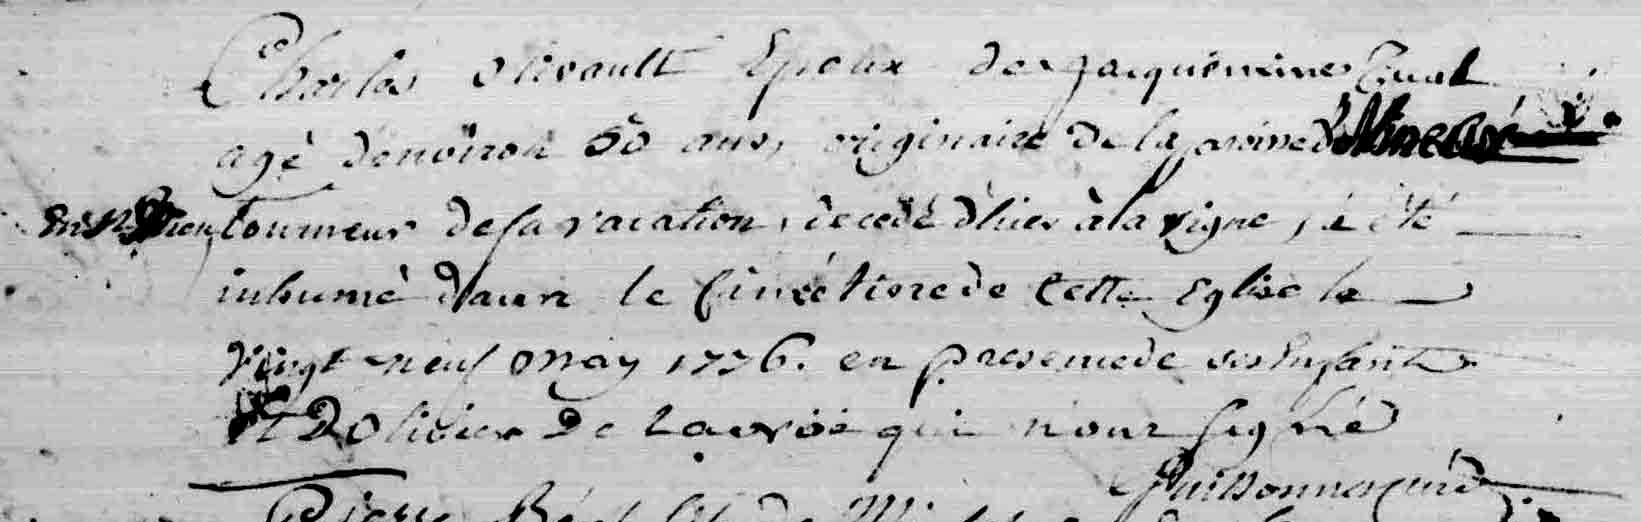 Charles Olivault Epoux de Jacquemine Cual
agé denviron 50 ans, originaire de la paroisse
tourneur de sa vacation, decedé d'hier à la vigne, à été
inhumé dans le Cimétiere de Cette Eglise le
vingt neuf may 1776. en presence de ses Enfants
et D'Olivier De qui n'ont signé
Guillonner curé
Pierre fils de